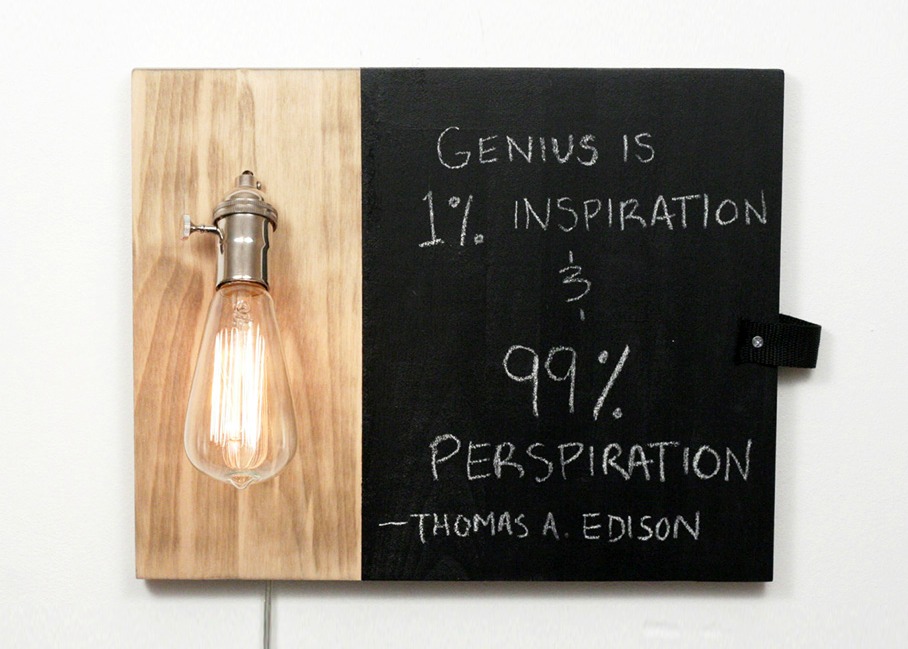 GENIUS IS
1% INSPIRATION
&
99%
PERSPIRATION
—THOMAS A. EDISON